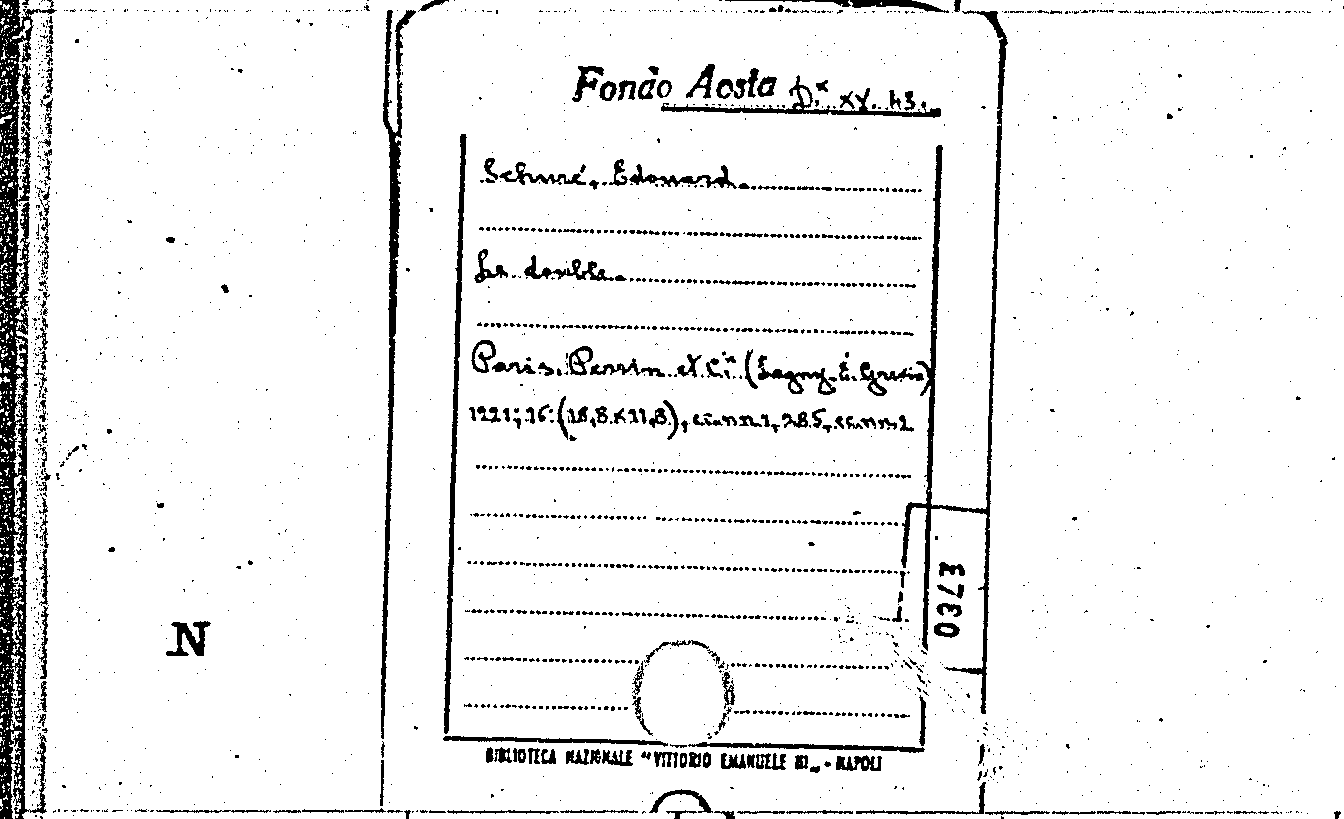 Fondo Aosta D.x XV. 43.
Schuré, Edouard.
Le double.
Paris, Perrin et Ci.e (Lagny-É. Grevin)
1921; 16: (18,8 x 11,8), cc.nn.1, 285, cc.nn.2
0373
N
BIBLIOTECA NAZIONALE "VITTORIO EMANUELE III„ - NAPOLI